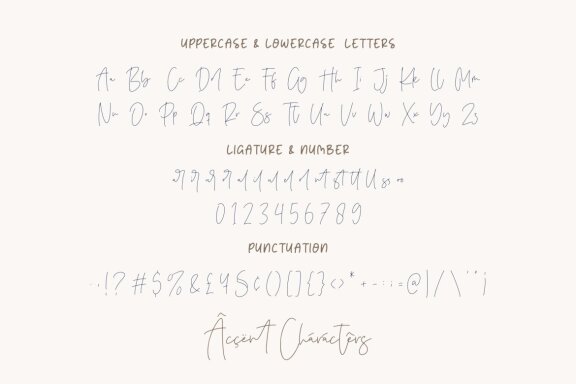 UPPERCASE & LOWERCASE LETTERS
Aa Bb Cc Dd Ee Ff Gg Hh Ii Jj Kk Ll Mm
Nn Oo Pp Qq Rr Ss Tt Uu Vv Ww Xx Yy Zz
LIGATURE & NUMBER
0 1 2 3 4 5 6 7 8 9
PUNCTUATION
! ? # $ % & £ ¥ § ¢ ( ) [ ] { } < > * + - : ; = @ | / \ " ' ¡
Âccënt Chárácters